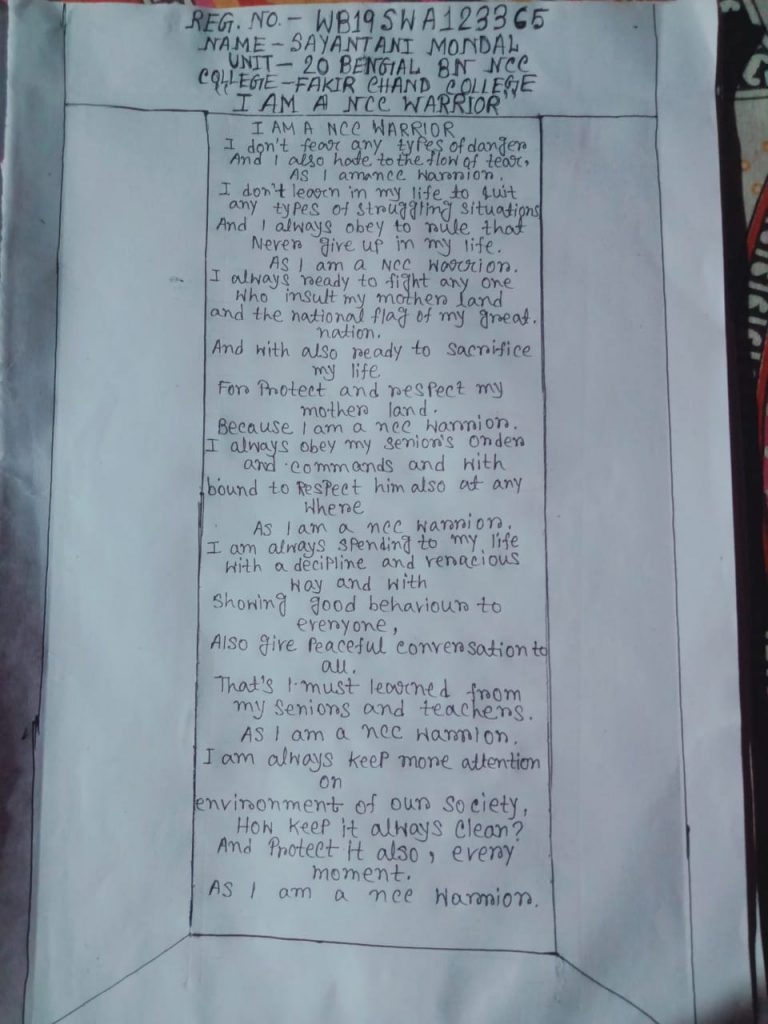 REG. NO. - WB19SWA123365
NAME - SAYANTANI MONDAL
UNIT - 20 BENGAL BN NCC
COLLEGE - FAKIR CHAND COLLEGE
I AM A NCC WARRIOR"
I AM A NCC WARRIOR
I don't fear any types of danger
And I also hate to the flow of tear,
As I am a ncc warrior.
I don't learn in my life to quit
any types of struggling situations
And I always obey to rule that
Never give up in my life.
As I am a NCC warrior.
I always ready to fight any one
who insult my mother land
and the national flag of my great.
nation.
And with also ready to sacrifice
my life
For Protect and respect my
mother land.
Because I am a ncc warrior.
I always obey my senior's order
and commands and with
bound to respect him also at any
where
As I am a ncc warrior.
I am always spending to my life
with a decipline and veracious
way and with
Showing good behaviour to
everyone,
Also give Peaceful conversation to
all.
That's I must learned from
my seniors and teachers.
As I am a ncc warrior.
I am always keep more attention
on
environment of our society,
How keep it always clean?
And Protect it also, every
moment.
As I am a ncc warrior.